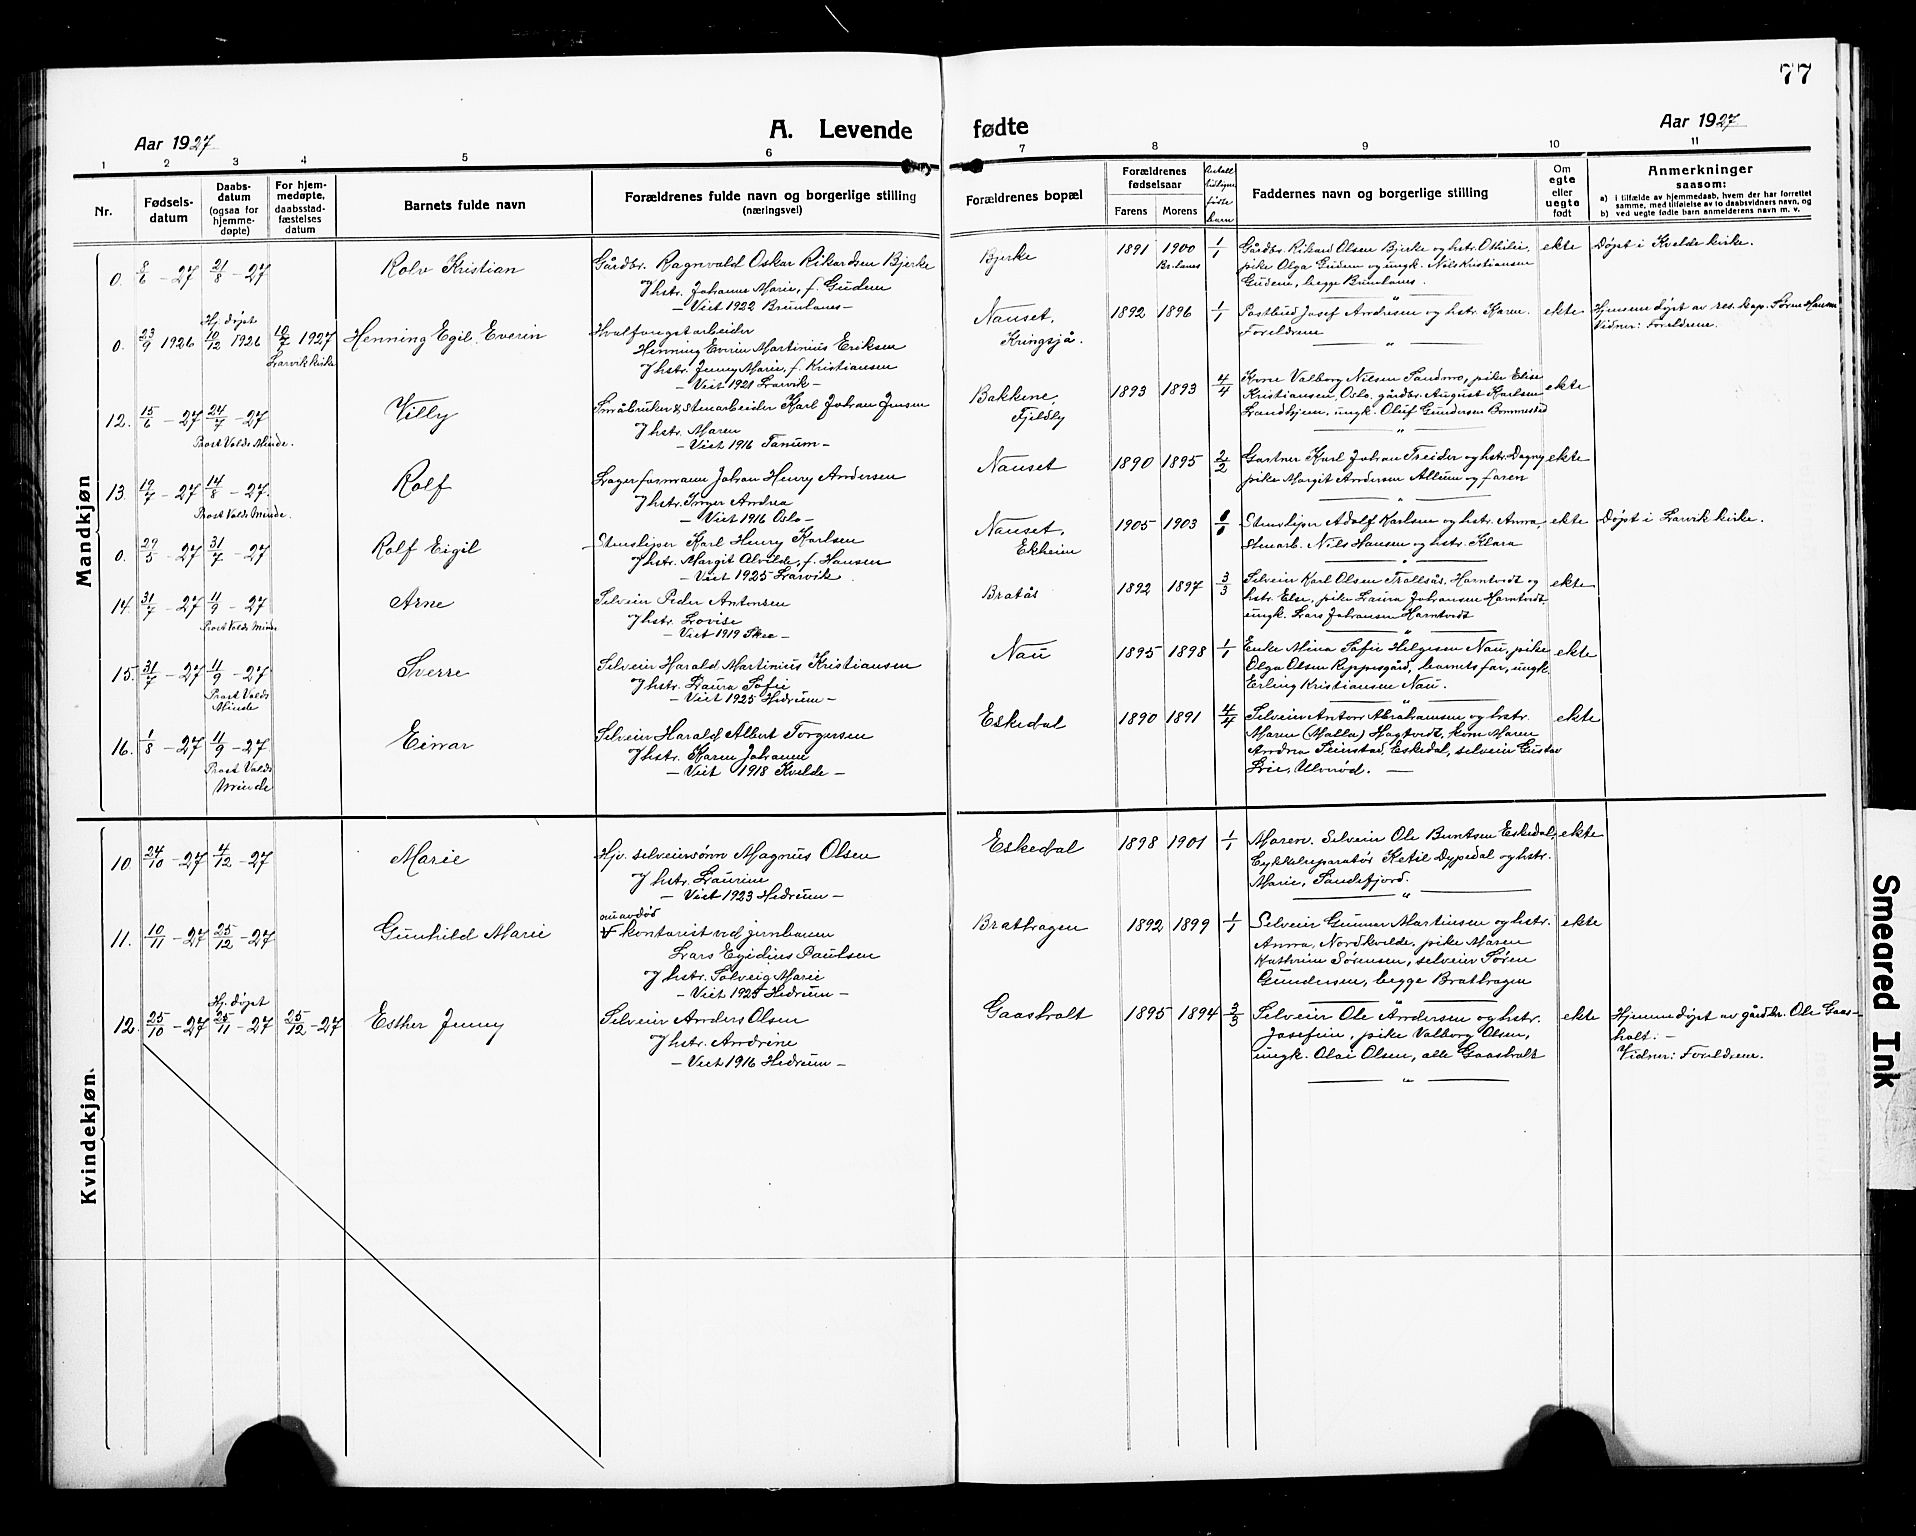 77
Aar 1927
A. Levende fødte
Aar 1927
1 2 3 4 5 6 7 8 9 10 11
Nr.
Fødsels-
datum
Daabs-
datum
(ogsaa for
hjemme-
døpte)
For hjem-
medøpte,
daabsstad-
fæstelses
datum
Barnets fulde navn
Forældrenes fulde navn og borgerlige stilling
(næringsvei)
Forældrenes bopæl
Forældrenes
fødselsaar
Farens Morens
Antall
tidligere
fødte
barn
Faddernes navn og borgerlige stilling
Om
egte
eller
uegte
født
Anmerkninger
saasom:
a) i tilfælde av hjemmedaab, hvem der har forrettet
samme, med tilføielse av to daabsvidners navn, og
b) ved uegte fødte barn anmelderens navn m. v.
Mandkjøn
0. 8/6 - 27 21/8 - 27 Rolv Kristian
Gårdbr. Ragnvald Oskar Rikardsen Bjerke
og hstr. Johanne Marie, f. Gudem
- Viet 1922 Brunlanes -
Bjerke 1891 1900 1/1
Br.lanes
Gårdbr. Rikard Olsen Bjerke og hstr. Othilie,
pike Olga Gudem og ungk. Nils Kristiansen
Gudem, begge Brunlanes.
ekte Døpt i Kvelde kirke.
0. 23/9 1926 Hj. døpt 10/12 1926 10/7 1927 Larvik kirke
Henning Egil Everin
Hvalfangstarbeider
Henning Evrin Martinius Eriksen
og hstr. Jenny Marie, f. Kristiansen
- Viet 1921 Larvik -
Nauset,
Kringsjå.
1892 1896 1/1
Postbud Josef Andersen og hstr. Karen.
Foreldrene
ekte
Hjemmedøpt av res. kap. Sørn Hansen
Vidner: Foreldrene.
12. 15/6 - 27 24/7 - 27
Prost Valds Minde.
Villy
Småbruker & stenarbeider Karl Johan Jensen
og hstr. Maren
- Viet 1916 Tanum -
Bakkene,
Fjeldby
1893 1893 4/4
Kone Valborg Nilsen Sandmo, pike Elise
Kristiansen, Oslo, gårdbr. August Karlsen
Landhjem, ungk. Oluf Gundersen Bommestad
ekte
13. 19/7 - 27 14/8 - 27.
Prost Valds Minde.
Rolf
Lagerformann Johan Henry Andersen
og hstr. Inger Andrea
- Viet 1916 Oslo -
Nauset 1890 1895 2/2
Gartner Karl Johan Treider og hstr. Dagny
pike Margit Andersen Allum og faren
ekte
0. 29/5 - 27 31/7 - 27 Rolf Eigil
Stensliper Karl Henry Karlsen
og hstr. Margit Alvilde, f. Hansen
- Viet 1925 Larvik.
Nauset,
Ekheim
1905 1903
Stensliper Adolf Karlsen og hstr. Anna,
Stenarb. Nils Hansen og hstr. Klara
ekte Døpt i Larvik kirke.
14. 31/7 - 27 11/9 - 27
Prost Valds Minde
Arne
Selveier Peder Antonsen
og hstr. Lovise
- Viet 1919 Skee -
Bratås 1892 1897 3/3
Selveier Karl Olsen Trollsås, Harntvedt og
hstr. Else, pike Laura Johansen Harntvedt,
ungk. Lars Johansen Harntvedt
ekte
15. 31/7 - 27 11/9 - 27
Prost Valds
Minde
Sverre
Selveier Harald Martinius Kristiansen
og hstr. Laura Sofie
- Viet 1925 Hedrum -
Nau 1895 1898 1/1
Enke Mina Sofie Helgesen Nau, pike
Olga Olsen Rppesgård, barnets far, ungk.
Erling Kristiansen Nau.
ekte
16. 1/8 - 27 11/9 - 27
Prost Valds
Minde
Einar
Selveier Harald Albert Torgersen
og hstr. Karen Johanne
- Viet 1918 Kvelde -
Eskedal 1890 1891 4/4
Selveier Anton Abrahamsen og hstr.
Maren (Malla) Hagtvedt, kone Maren
Andrea Seierstad, Eskedal, selveier Gustav
Lie, Ulvnød. -
ekte
Kvindekjøn.
10. 24/10 - 27 4/12 - 27 Marie
Hjv. selveiersønn Magnus Olsen
og hstr. Laurine
- Viet 1923 Hedrum -
Eskedal 1898 1901 1/1
Maren. Selveier Ole Buntsen Eskedal,
Cykkelreparatør Ketil Dypedal og hstr.
Marie, Sandefjord.
ekte
11. 10/11 - 27 25/12 - 27 Gunhild Marie
nu avdød
kontorist ved jernbanen
Lars Egidius Paulsen
og hstr. Solveig Marie
- Viet 1925 Hedrum -
Brathagen 1892 1899 1/1
Selveier Gunnar Martinsen og hstr.
Anna, Nordkvelde, pike Maren
Kathrine Sørensen, selveier Søren
Gundersen, begge Brathagen
ekte
12. 25/10 - 27 Hj. døpt 25/11 - 27 25/12 - 27 Esther Jenny
Selveier Anders Olsen
og hstr. Andrine
- Viet 1916 Hedrum -
Gaasholt 1895 1894 3/3
Selveier Ole Andersen og hstr.
Josefine, pike Valborg Olsen,
ungk. Olai Olsen, alle Gaasholt
ekte
Hjemmedøpt av gårdbr. Ole Gaas-
holt: -
Vidner: Foreldrene.
Smeared Ink